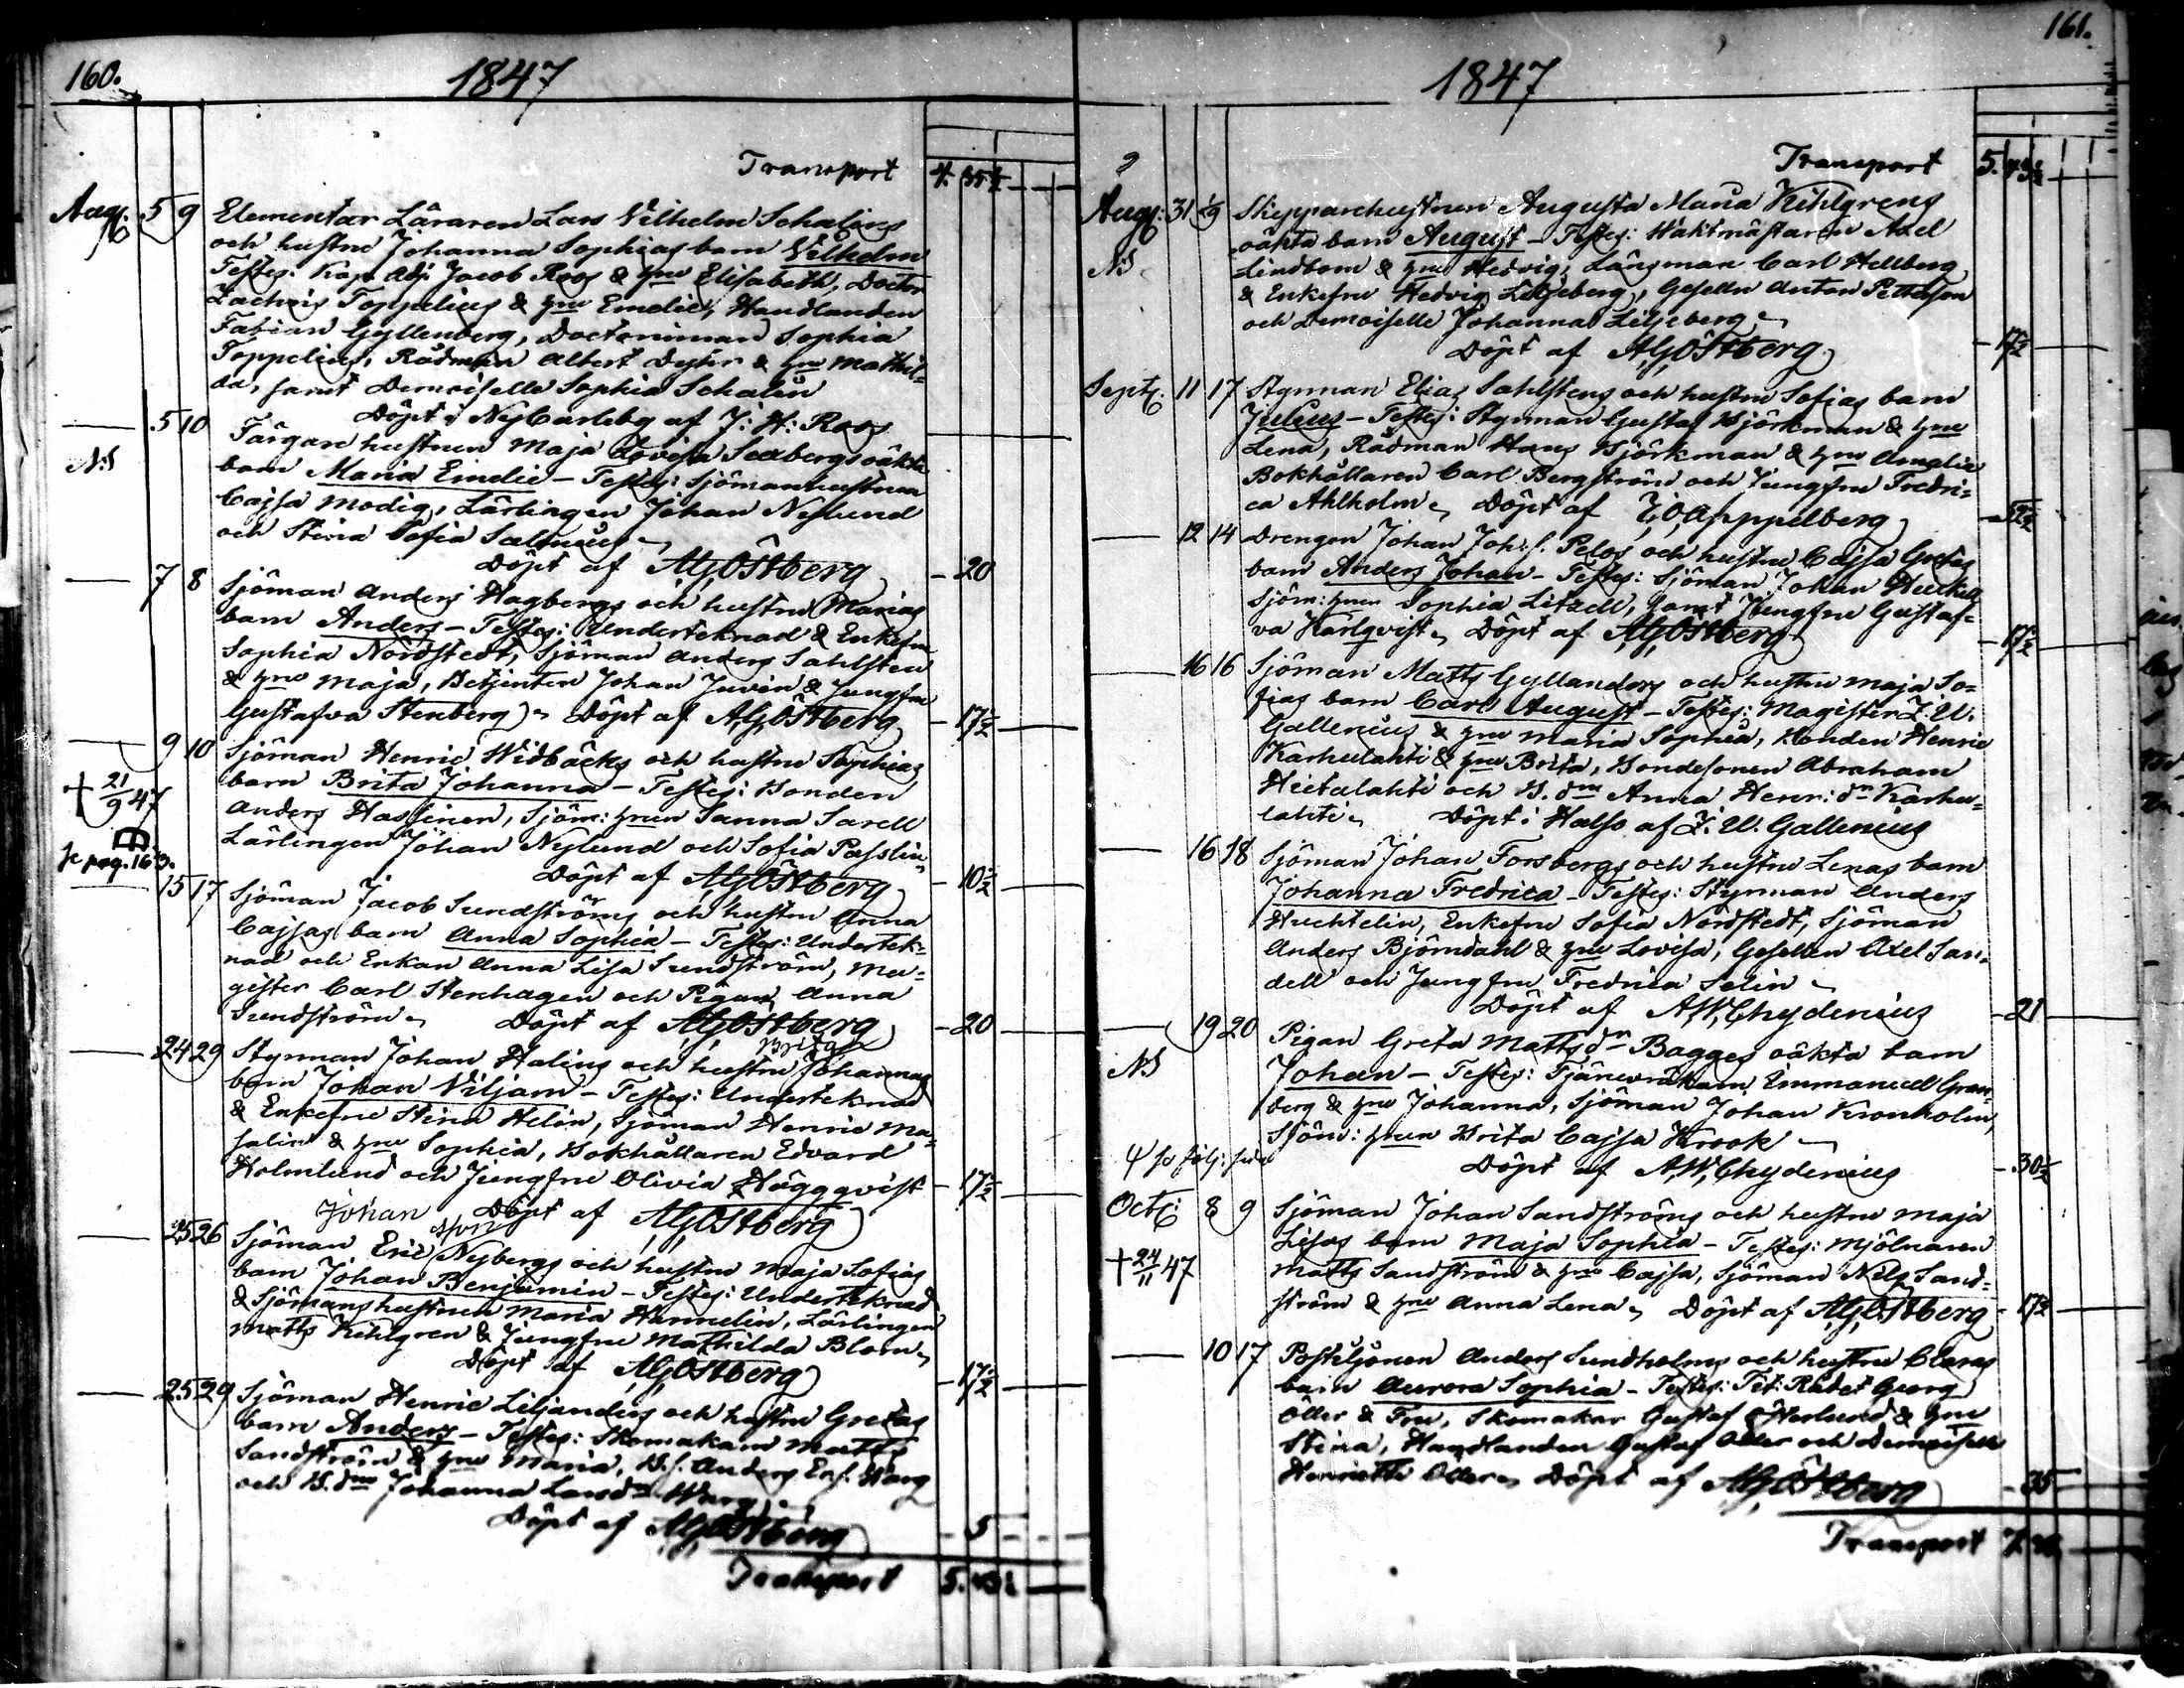 160.
1847
Transport 4. 35 1/2
Aug: 5 9 Elementar Läraren Lars Vilhelm Schalins
och hustru Johanna Sophias barn Vilhelm
Testes: Kap. Adj. Jacob Roos & hru Elisabeth, Doctor
Zachris Toppelius & hru Emelie, Handlanden
Fabian Gyllenberg, Doctorinnan Sophia
Toppelius, Rådman Albert Dyhr & hru Mathil=
da, samt Demoiselle Sophia Schalin
Döpt i Ny Carleby af J: H: Roos
5 10 Färgare hustrun Maja Lovisa Seebergs oäkta
N:S barn Maria Emelie – Testes: Sjömanhustrun
Cajsa Modig, Lärlingen Johan Nylund
och Stina Sofia Salenius
Döpt af A,G,Östberg – 20
7 8 Sjöman Anders Hagbergs och hustru Marias
barn Anders – Testes: Underteknad & Enkefru
Sophia Nordstedt, Sjöman Anders Sahlsten
& hru Maja, Betjenten Johan Juvén & Jungfru
Gustafva Stenberg – Döpt af A,G,Östberg – 17 1/2
9 10 Sjöman Henric Widbäcks och hustru Sophias
† 21/9 47 barn Brita Johanna – Testes: Bonden
Anders Hassinen, Sjöm: hrun Sanna Sarell
Lärlingen Johan Nylund och Sofia Passlin
se pag. 163.
Döpt af A,G,Östberg – 10 1/2
15 17 Sjöman Jacob Sundströms och hustru Anna
Cajsas barn Anna Sophia – Testes: Undertek=
nad och Enkan Anna Lisa Sundström, Ma=
gister Carl Stenhagen och Pigan Anna
Sundström – Döpt af A,G,Östberg – 20
Brita
24 29 Styrman Johan Halins och hustru Johannas
barn Johan Viljam – Testes: Underteknad
& Enkefru Stina Helin, Sjöman Henric Ma=
salin & hru Sophia, Bokhållaren Edvard
Holmlund och Jungfru Olivia Häggqvist – 17 1/2
Johan Döpt af A,G,Östberg
25 26 Sjöman Eric Nybergs och hustru Maja Sofias
barn Johan Benjamin – Testes: Underteknad
& Sjömanshustrun Maria Hannelin, Lärlingen
Matts Kihlgren & Jungfru Mathilda Blom
Döpt af A,G,Östberg – 17 1/2
25 29 Sjöman Henric Liljanders och hustru Gretas
barn Anders – Testes: Skomakarn Matts
Sandström & hru Maria, B.s. Anders Ers. Warg
och B.dr Johanna Larsdr Warg
Döpt af A,G,Östberg – 5
Transport 5. 43 1/2
161.
1847
Transport 5. 43 1/2
Aug: 31 1/9 Skepparehustrun Augusta Maria Kihlgrens
oäkta barn August – Testes: Waktmästaren Axel
N:S Lindbom & hru Hedvig, Länsman Carl Hellberg
& Enkefru Hedvig Liljeberg, Gesellen Anton Petterson
och Demoiselle Johanna Liljeberg
Döpt af A,G,Östberg – 17 1/2
Sept: 11 17 Styrman Elias Sahlstens och hustru Sofias barn
Julius – Testes: Styrman Gustaf Björkman & hru
Lena, Rådman Hans Björkman & hru Amalia
Bokhållaren Carl Bergström och Jungfru Fredri=
ca Ahlholm – Döpt af E,O,Apppelberg
12 14 Drengen Johan Joh:s. Pelos och hustru Cajsa Gretas
barn Anders Johan – Testes: Sjöman Johan Heickell
Sjöm: hrun Sophia Litzell, samt Jungfru Gustaf=
va Karlqvist – Döpt af A,G,Östberg – 17 1/2
16 16 Sjöman Matts Gyllanders och hustru Maja So=
fias barn Carl August – Testes: Magister Z. W.
Gallenius & hru Maria Sophia, Bonden Henric
Karhulahti & hru Brita, Bondesonen Abraham
Hietalahti och B. dr Anna Henr: dr Karhu=
lahti – Döpt i Halso af Z. W. Gallenius
16 18 Sjöman Johan Forsbergs och hustru Lenas barn
Johanna Fredrica – Testes: Styrman Anders
Huchtelin, Enkefru Sofia Nordstedt, Sjöman
Anders Björndahl & hru Lovisa, Gesellen Axel San=
dell och Jungfru Fredrica Selin
Döpt af A,W,Chydenius – 21
19 20 Pigan Greta Mattsdr Bagges oäkta barn
N:S Johan – Testes: Tjänare Emmanuel Gran=
berg & hru Johanna, Sjöman Johan Kronholm,
Sjöm: hrun Brita Cajsa Krook
se följ: sida
Döpt af A,W,Chydenius – 30 1/2
Oct: 8 9 Sjöman Johan Sandströms och hustru Maja
Lisas barn Maja Sophia – Testes: Mjölnaren
† 24/11 47 Matts Sandström & hru Cajsa, Sjöman Nils Sand=
ström & hru Anna Lena – Döpt af A,G,Östberg – 17 1/2
10 17 Postiljonen Anders Sundholms och hustru Claras
barn Aurora Sophia – Testes: Tit: Rådet Georg
Öller & Fru, Skomakar Gustaf Österlund & hru
Stina, Handlanden Gustaf Öller och Demoiselle
Henriette Öller – Döpt af A,G,Östberg – 35
Transport 7.